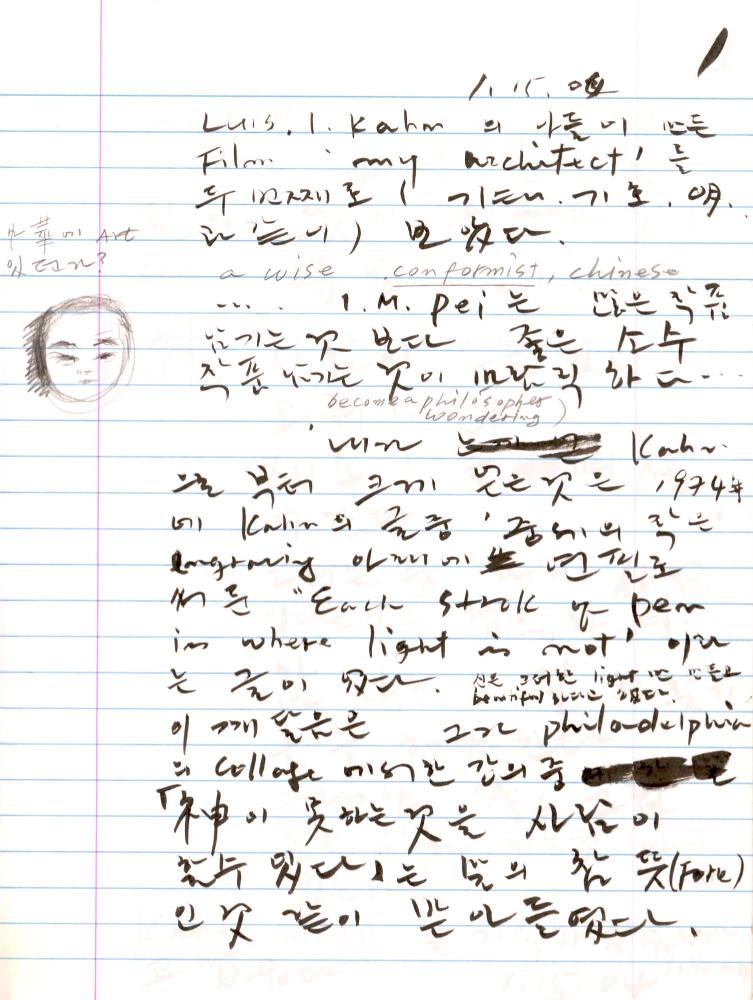 1. 15. 0
Luis. I. Kahn 의 아들이 만든
Film 'my architect' 를
두번째로 ( 기태. 기호. 明.
과 같이 ) 보았다.
中華에 Art
있던가?
a wise conformist, chinese
.... I. M. Pei 는 많은 작품
남기는 것 보다 좋은 소수
작품 남기는 것이 바람직 하다...
become a philosopher
wondering)
'내가 Kahn
으로 부터 크게 얻은것은 1974年
에 Kahn의 글중 '중세의 작은
engraving 아래에 연필로
써둔 "Each strok of pen
is where light is not' 이라
는 글이 였다.
신은 light 만 만들고
beautiful 하다고 했다.
이 깨달음은 그가 philadelphia
의 College 에서한 강의중
「神이 못하는것을 사람이
할수 있다」는 말의 참 뜻(Form)
인 것 같이 받아 들였다.